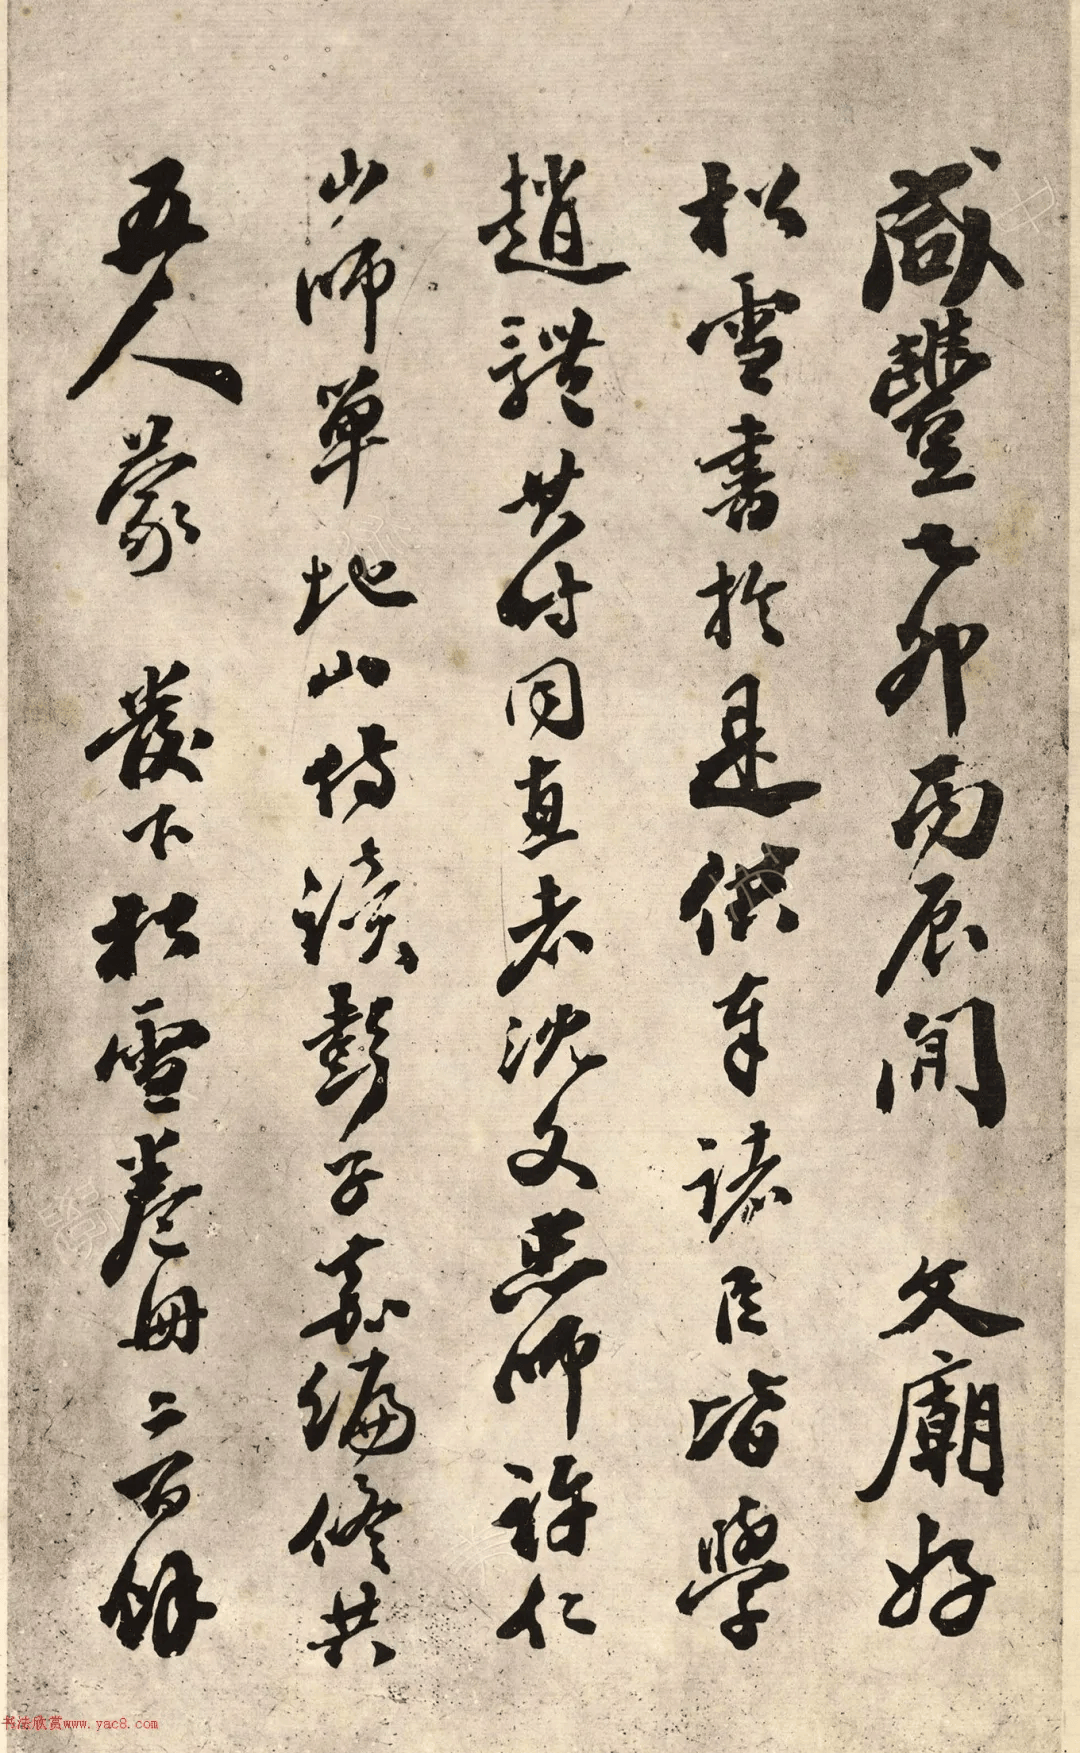 咸豐乙卯丙辰間 文廟好
松雪書於是供奉諸臣皆學
趙體其時同直者沈文忠師許仁
山師單地山侍讀彭子嘉編修共
五人蒙 發下松雪卷冊二百餘
书法欣赏www.yac8.com